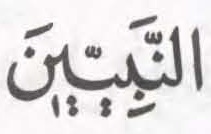 النَّبِيّٖنَ